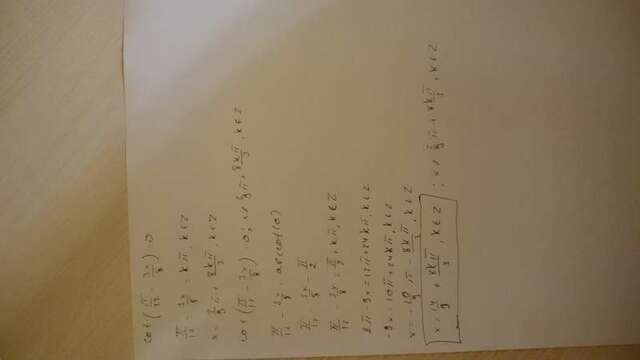 cot(π/12 - 3x/8) = 0
π/12 - 3x/8 = kπ, k∈Z
x = 2/9 π + 8kπ/3, k∈Z
cot(π/12 - 3x/8) = 0 ; x ≠ 2/9 π + 8kπ/3, k∈Z
π/12 - 3x/8 = arccot(0)
π/12 - 3x/8 = π/2
π/12 - 3x/8 = π/2 + kπ, k∈Z
2π - 9x = 12π + 24kπ, k∈Z
-9x = 10π + 24kπ, k∈Z
x = -10/9 π - 8kπ/3, k∈Z
8kπ/3, k∈Z ; x ≠ 2/9 π + 8kπ/3, k∈Z